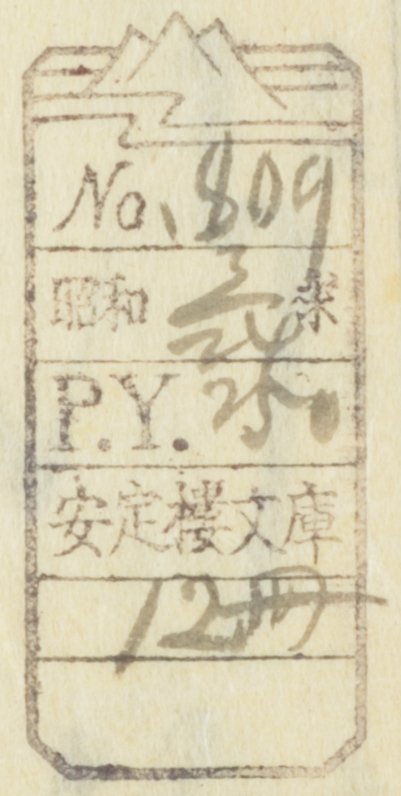 No. 809
昭和 求
P.Y.
安定樓文庫
12冊